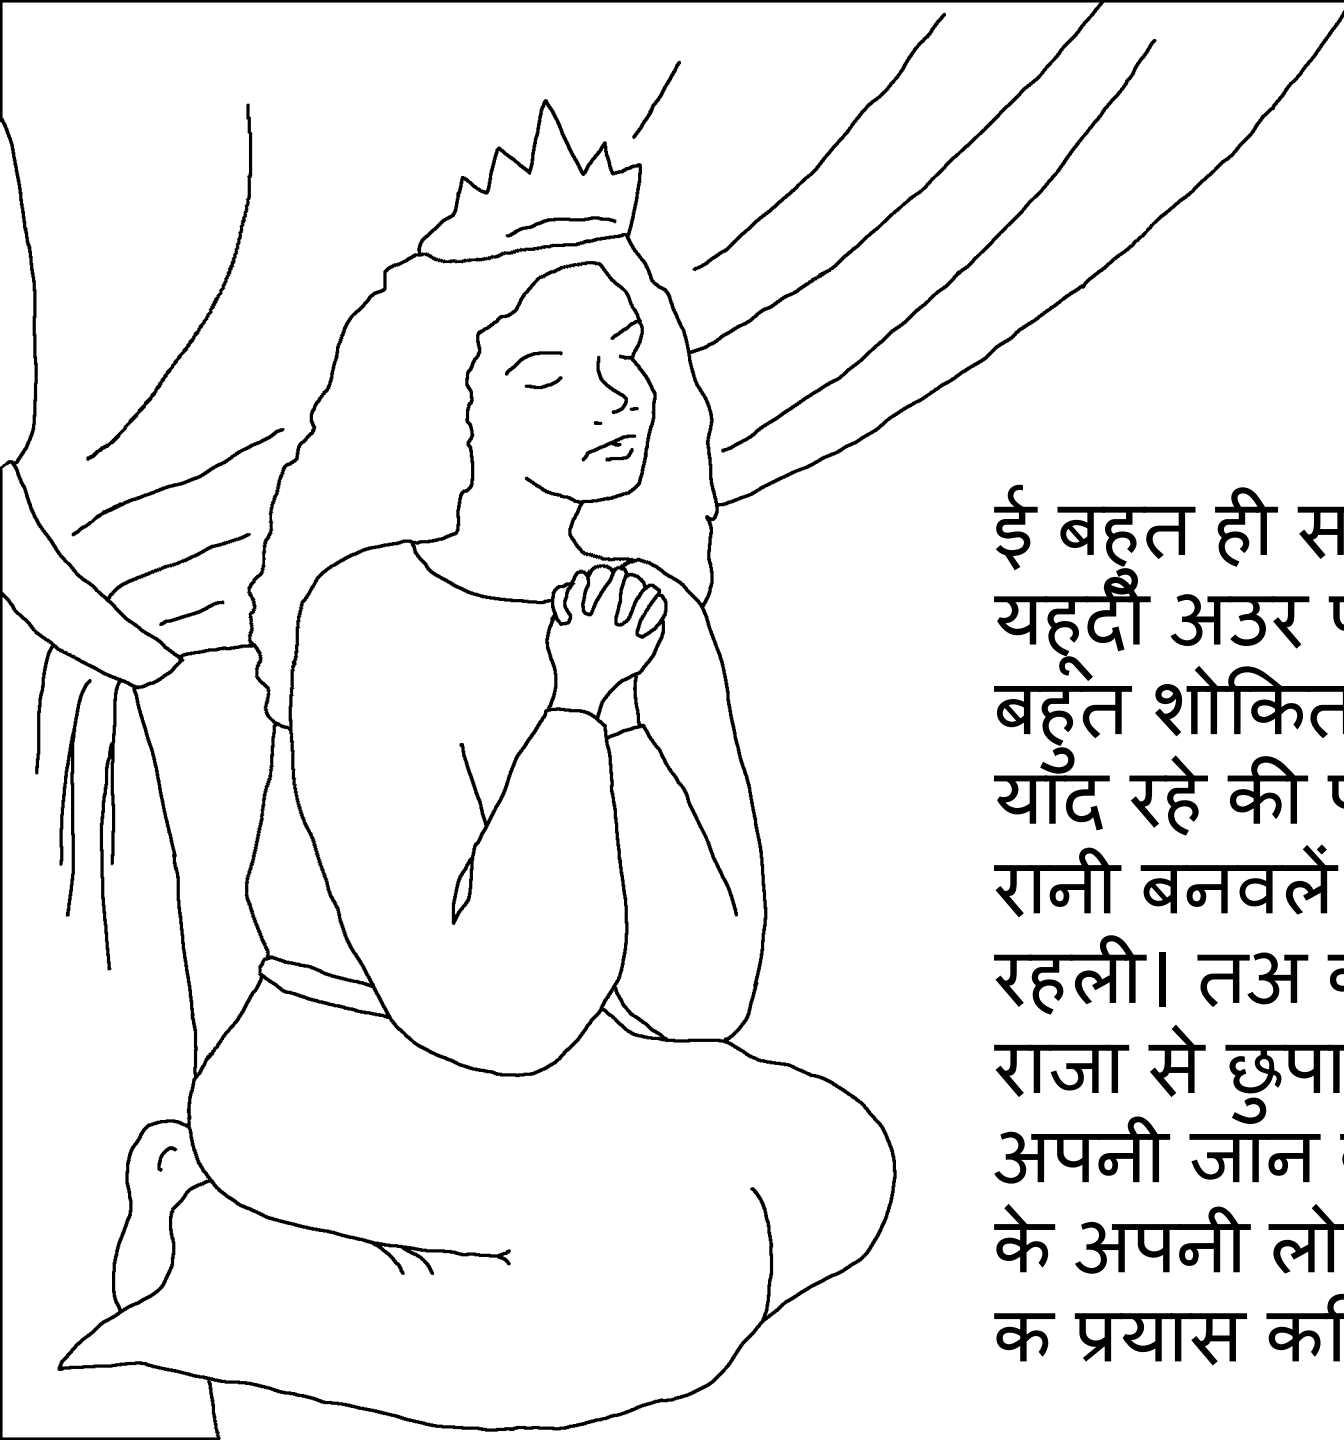 ई बहुत ही
यहूदी अउर
बहुत शोकित
याद रहे की
रानी बनवलें
रहली। तअ
राजा से
अपनी जान
के अपनी
क प्रयास